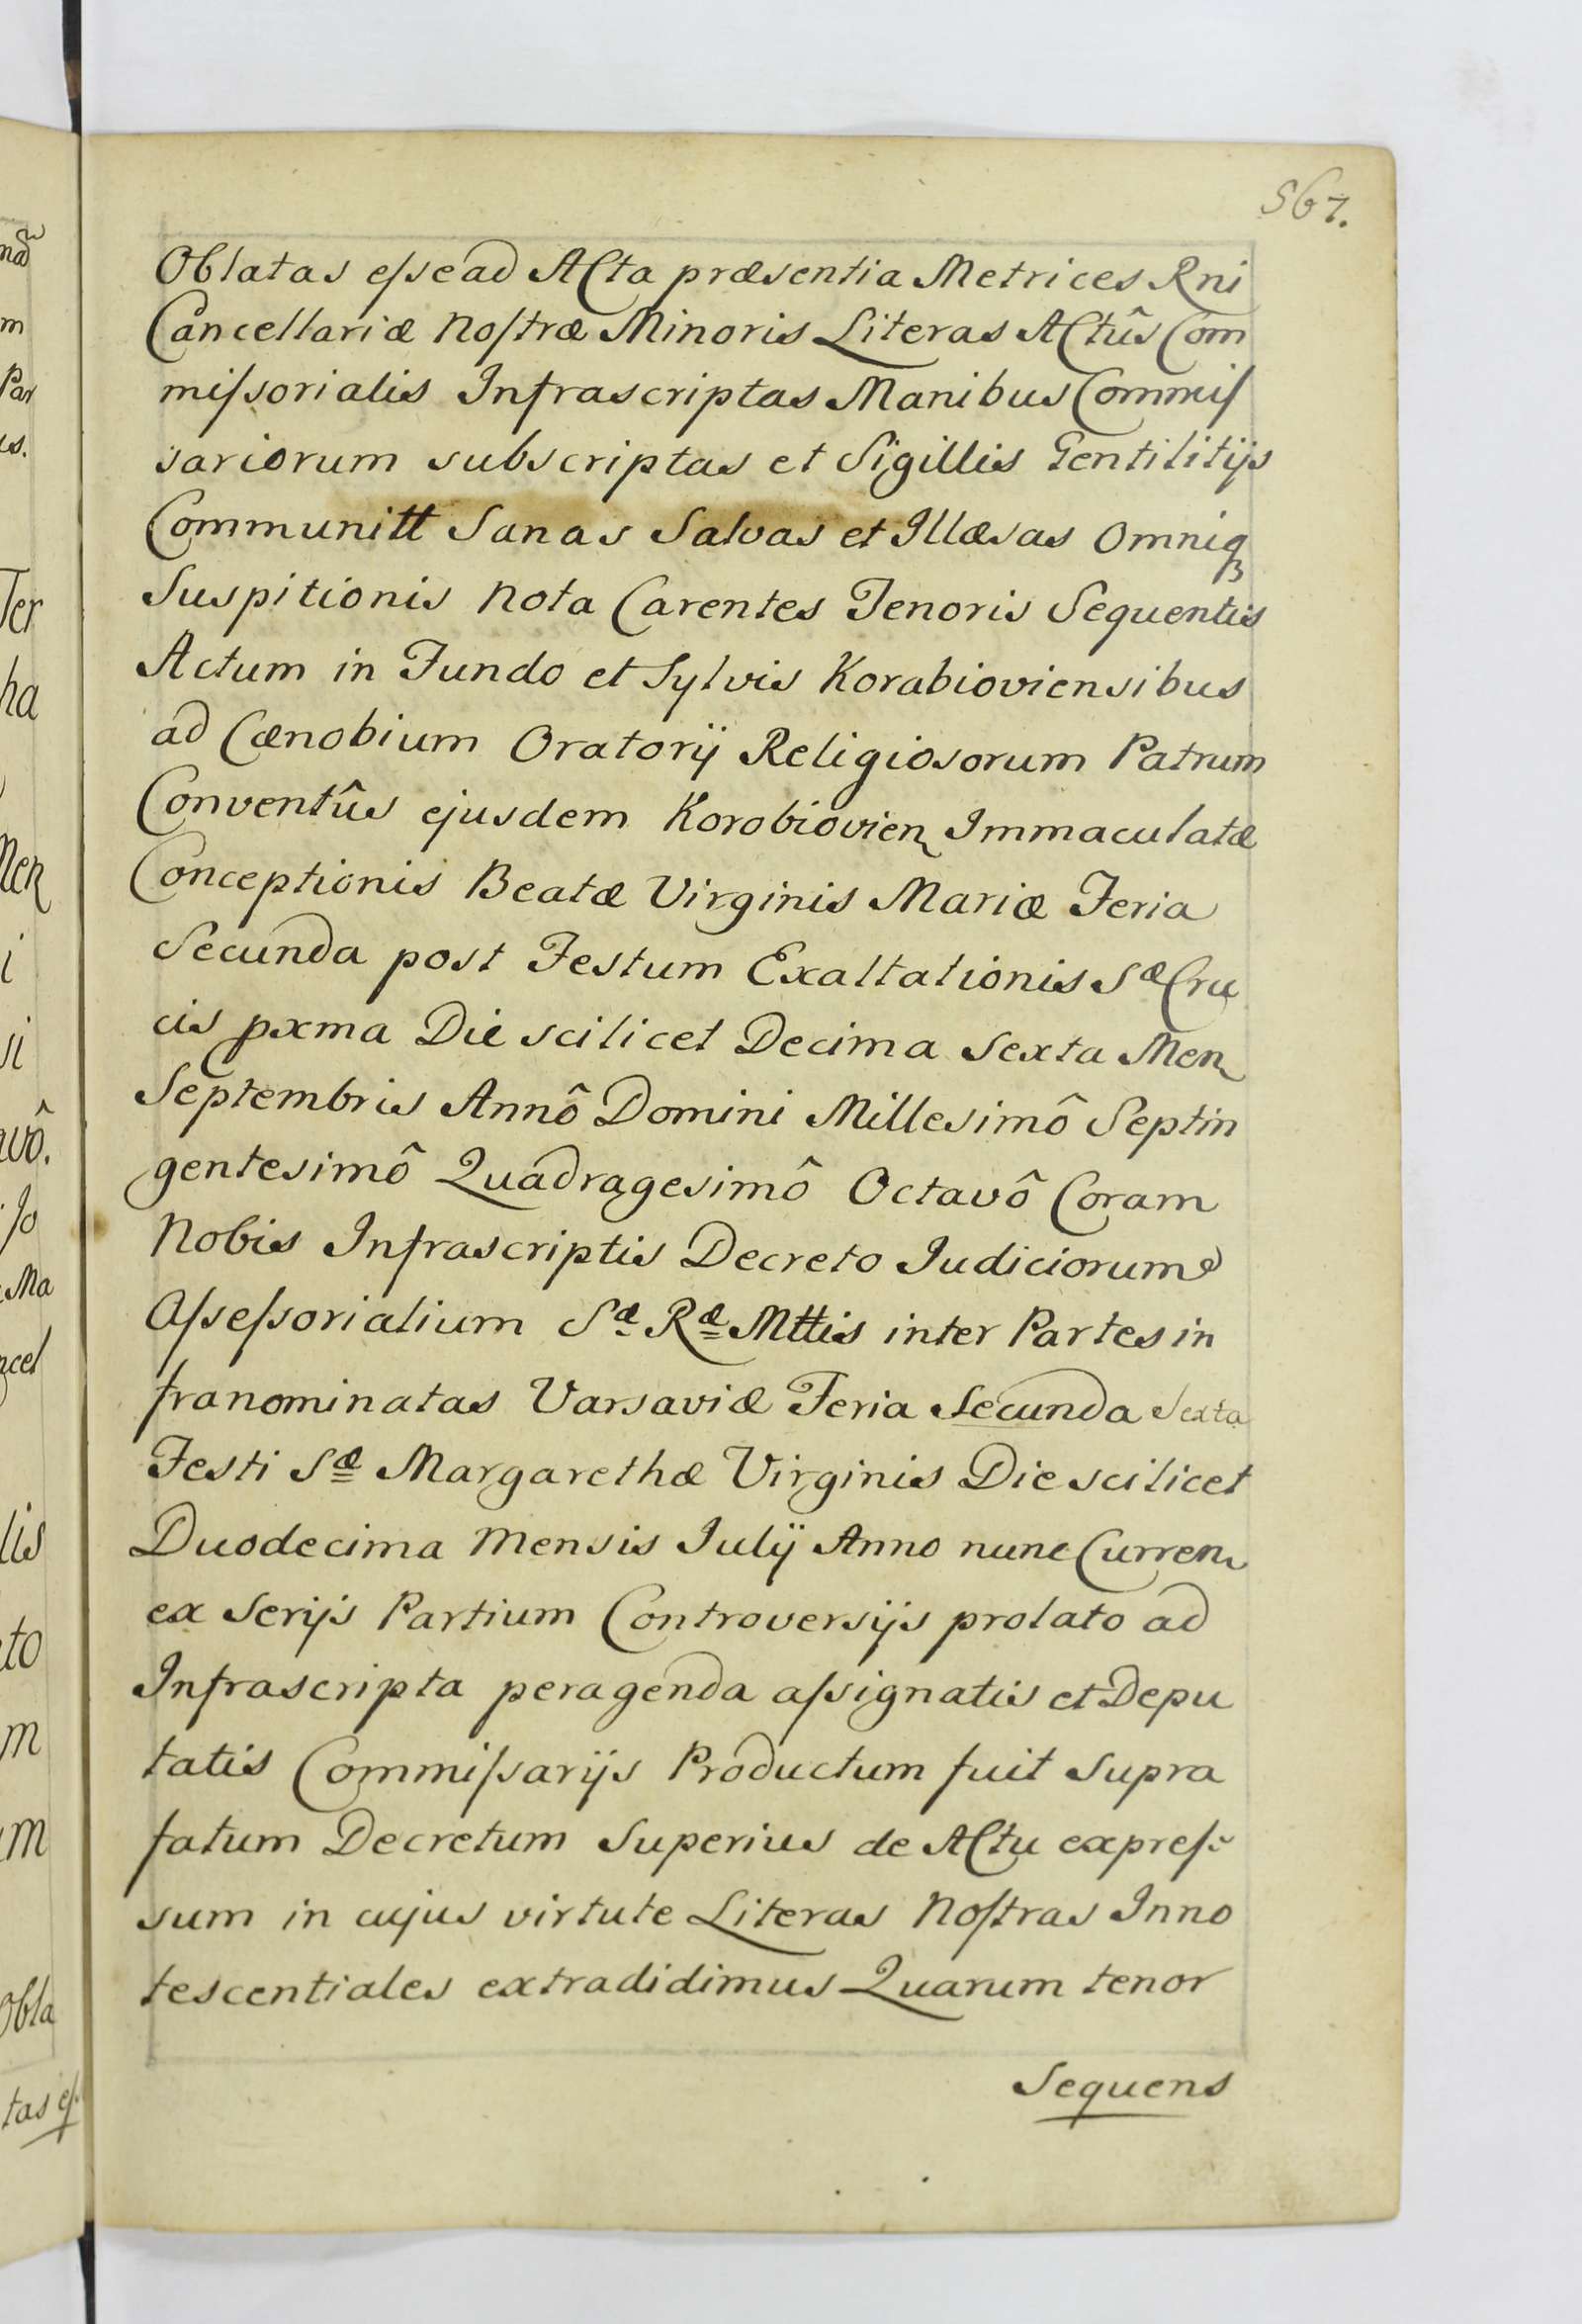 567.
Oblatas eſsead ACta præsentia Metrices Rni
Cancellariæ Noſtræ Minoris Literas ACtûs Com
miſsorialis Infrascriptas Manibus Commiſ
sariorum subscriptas et Sigillis Gentilitijs
Communitt Sanas Salvas et Illæsas Omniqꝫ
Suspitionis Nota Carentes Tenoris Sequentis
Actum in Fundo et Sylvis Korabioviensibus
ad Cænobium Oratorij Religiosorum Patrum
Conventûs ejusdem Korobiovien Immaculatæ
Conceptionis Beatæ Virginis Mariæ Feria
Secunda post Festum Exaltationis Sæ Cru
cis pxma Die scilicet Decima Sexta Men
Septembris Annô Domini Millesimô Septin
gentesimô Quadragesimô Octavô Coram
Nobis Infrascriptis Decreto Iudiciorum
Aſseſsorialium Sæ Ræ Mttis inter Partes in
franominatas Varsaviæ Feria Secunda Sexta
Festi Sæ Margarethæ Virginis Die scilicet
Duodecima Mensis Iulij Anno nunc Curren
ex Serijs Partium Controversijs prolato ad
Infrascripta peragenda aſsignatis et Depu
tatis Commiſsarijs Productum fuit Supra
fatum Decretum Superius de ACtu expreſ
sum in cujus virtute Literas Noſtras Inno
tescentiales extradidimus Quarum tenor
Sequens